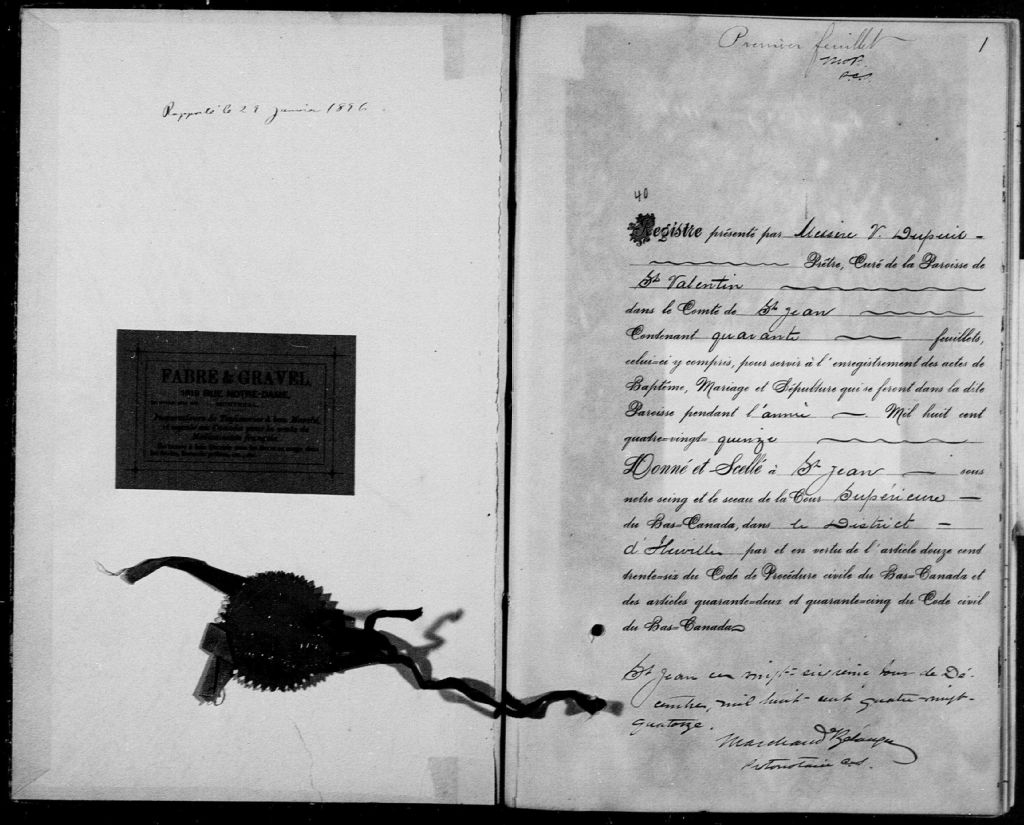 Rapporté le 28 Janvier 1896.
FABRE & GRAVEL,
1619 RUE NOTRE-DAME,
MONTREAL.
Premier feuillet
1
40
Registre présenté par Messire V. Dupuis
Prêtre, Curé de la Paroisse de
St Valentin
dans le Comté de St Jean
Contenant quarante feuillets,
celui-ci y compris, pour servir à l'enregistrement des actes de
Baptême, Mariage et Sépulture qui se feront dans la dite
Paroisse pendant l'année Mil huit cent
quatre-vingt-quinze
Donné et Scellé à St Jean sous
notre seing et le sceau de la Cour Supérieure
du Bas-Canada, dans le District
d'Iberville par et en vertu de l'article douze cent
trente-six du Code de Procédure civile du Bas-Canada et
des articles quarante-deux et quarante-cinq du Code civil
du Bas-Canada
St Jean ce vingt-sixième jour de Dé-
cembre, mil huit cent quatre-vingt-
quatorze.
Marchand & Bélanger
Protonotaire C.S.